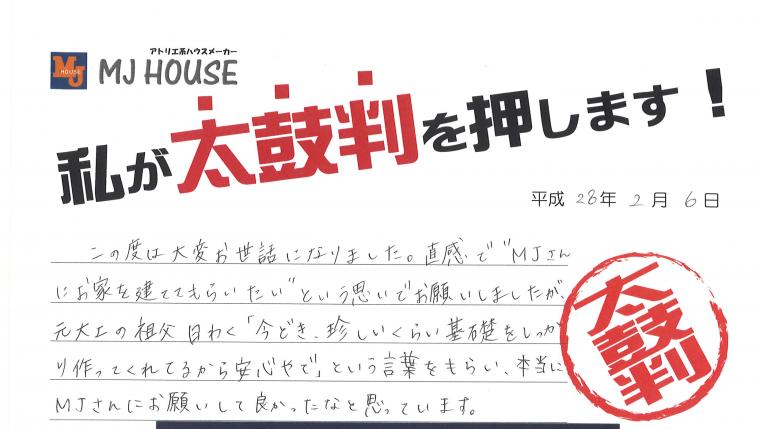 アトリエ系ハウスメーカー
MJ HOUSE
MJ HOUSE
私が太鼓判を押します！
平成 28年 2月 6日
この度は大変お世話になりました。直感で"MJさん
にお家を建ててもらいたい"という思いでお願いしましたが、
元大工の祖父曰わく「今どき、珍しいくらい基礎をしっか
り作ってくれてるから安心やで」という言葉をもらい、本当に
MJさんにお願いして良かったなと思っています。
太鼓判